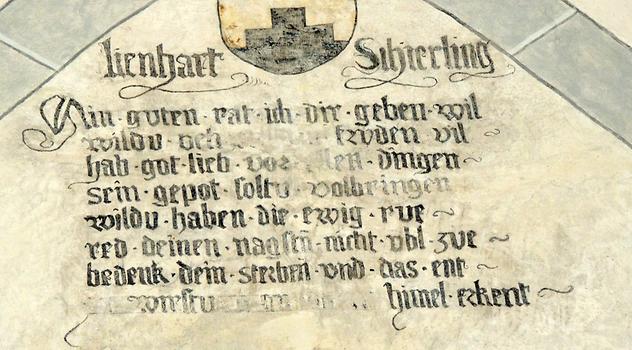 lienhart Schierling
Ain · guten · rat · ich · dir · geben · wil
wildu · och fryden vil
hab · got · lieb · vor · allen · dingen
sein · gepot · soltu · volbringen
wildu · haben · die · ewig · rue
red · deinen · nagsten · nicht · vbl · zue
bedenk · dem · sterben · vnd · das · ent
wirstu himel · erkent